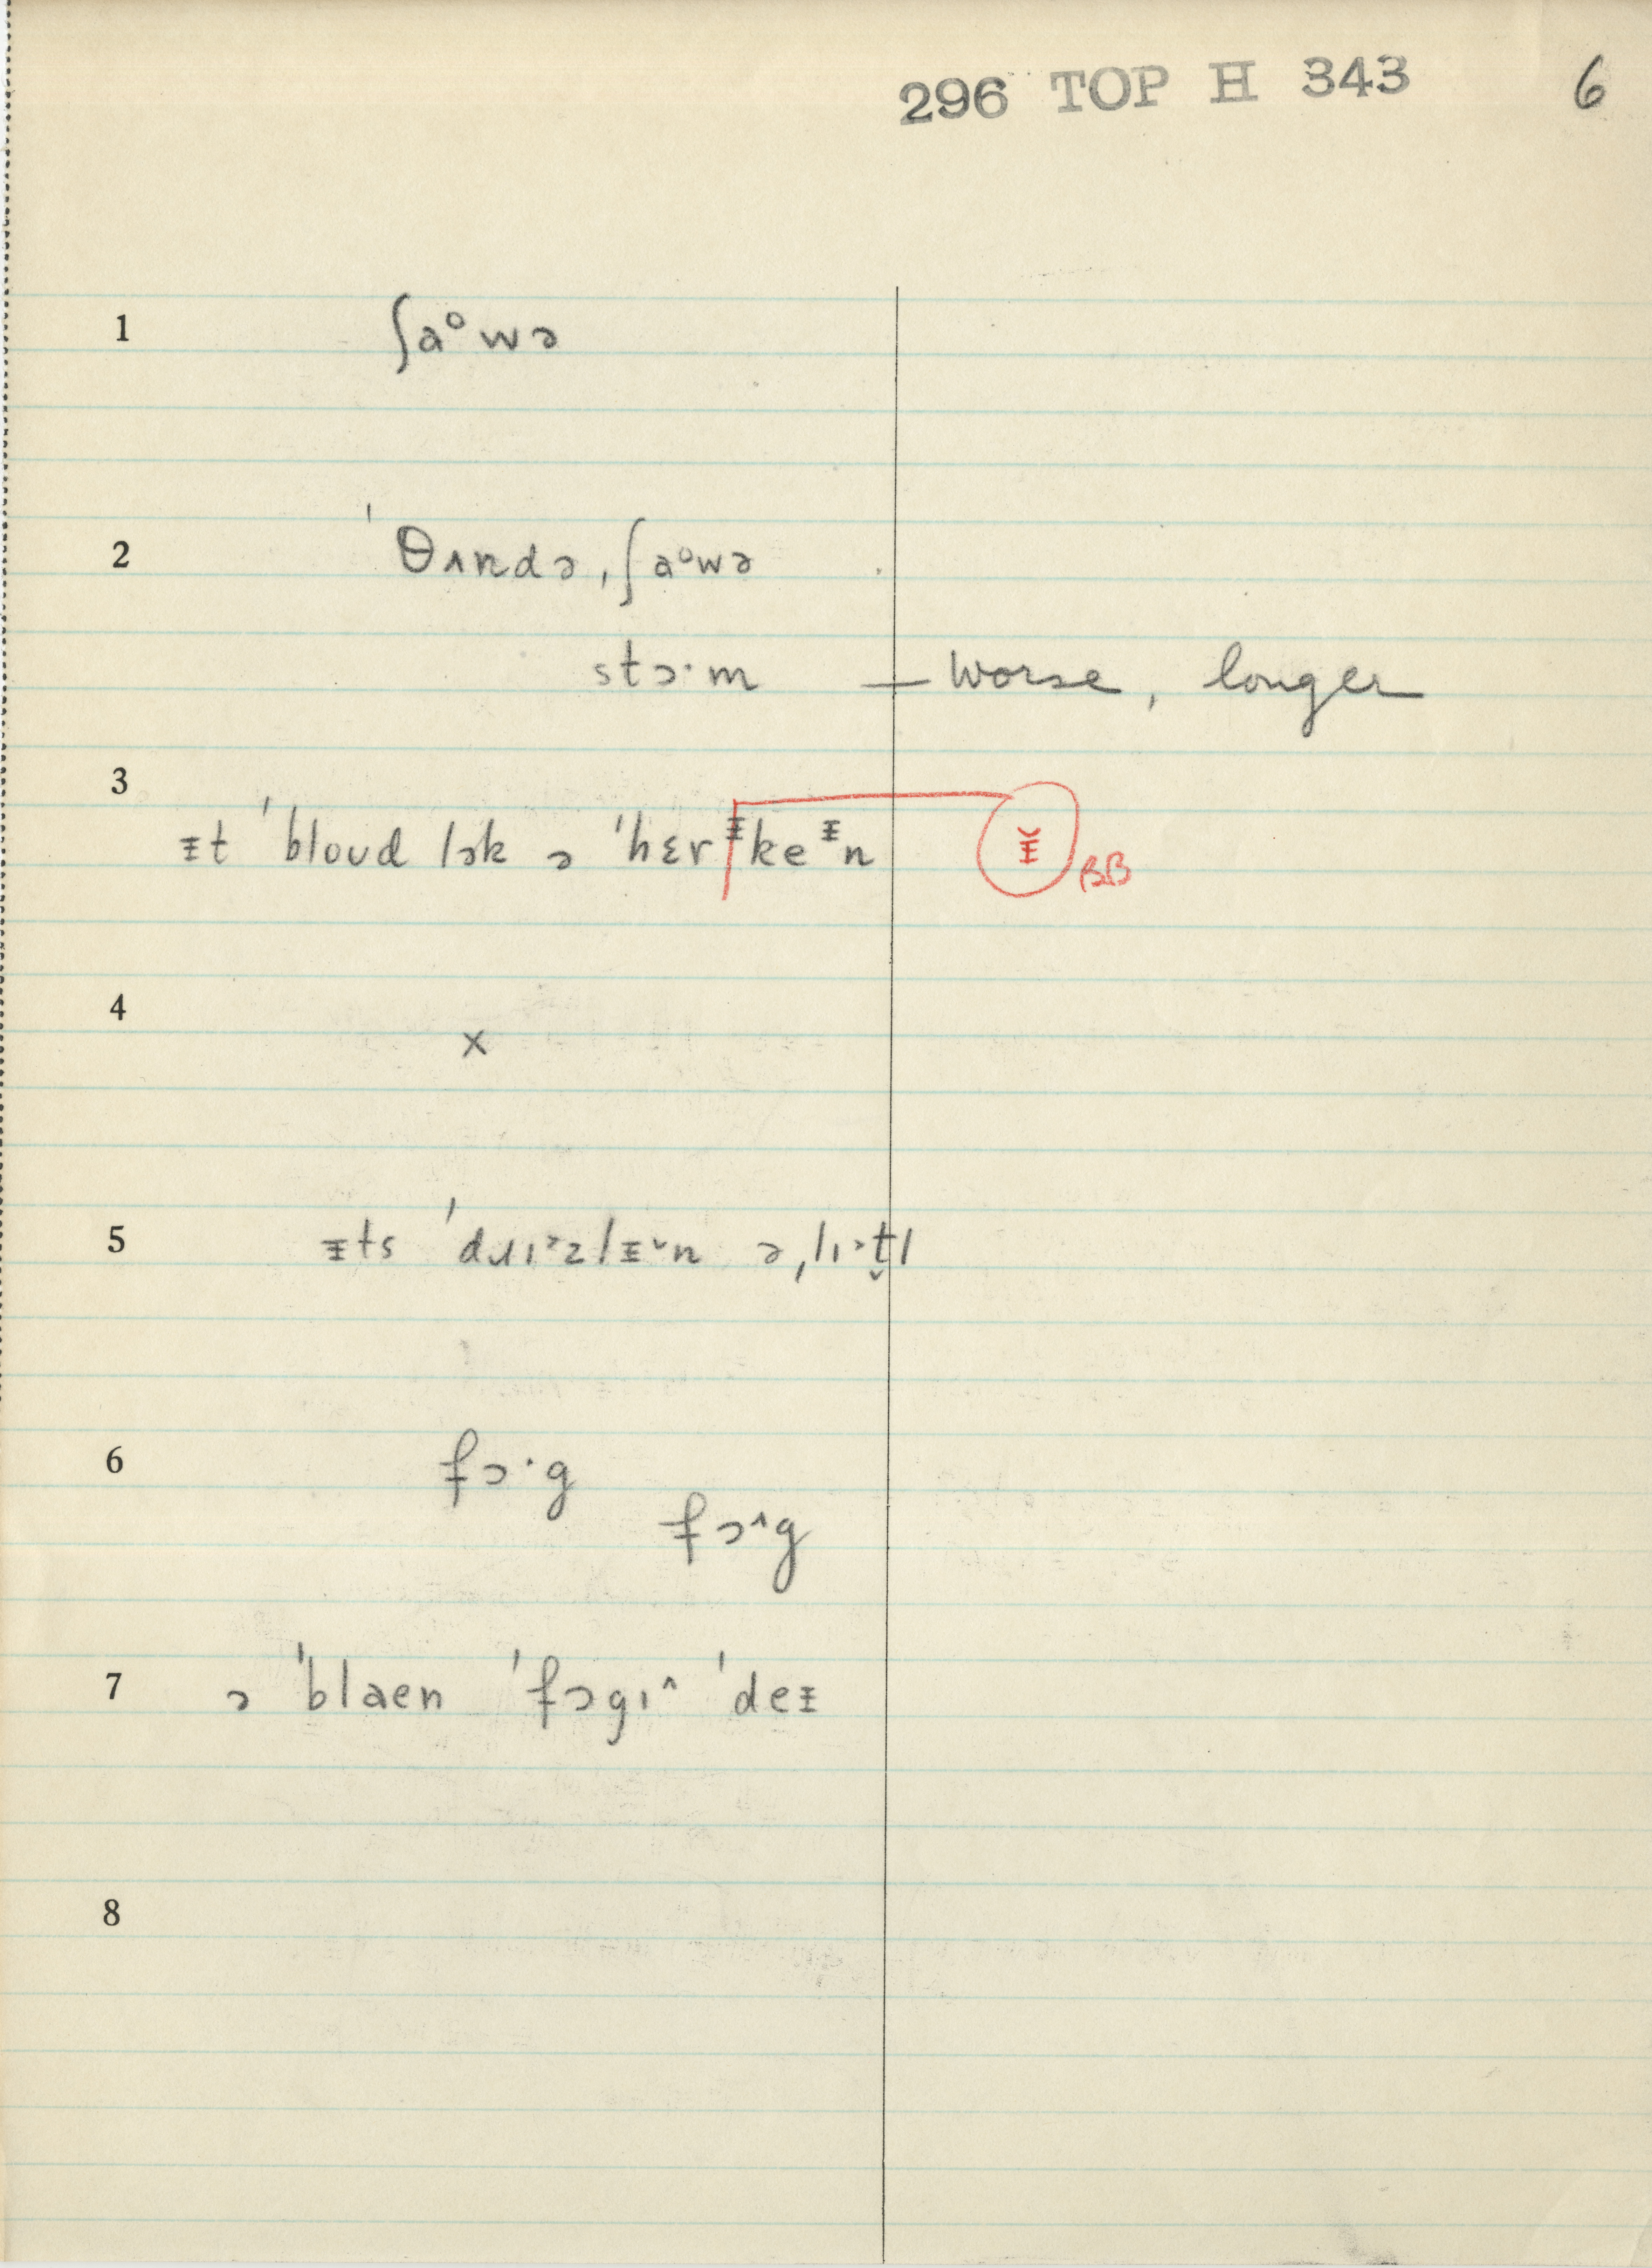 296 TOP H 343 6
1 ʃaºwə
2 ˈθʌndə ˌʃaºwə
stɔ·m – worse, longer
3 ɪt ˈbloʊd lək ə ˈhɛrᵻkeᵻn ᵻ̆ BB
4 x
5 ᵻts ˈdɹɪ˃zlᵻ˅n ə ˌlɪ˃t̬l
6 fɔ·g
fɔ^g
7 ə ˈblaen ˈfɔgɪ^ ˈdeᵻ
8